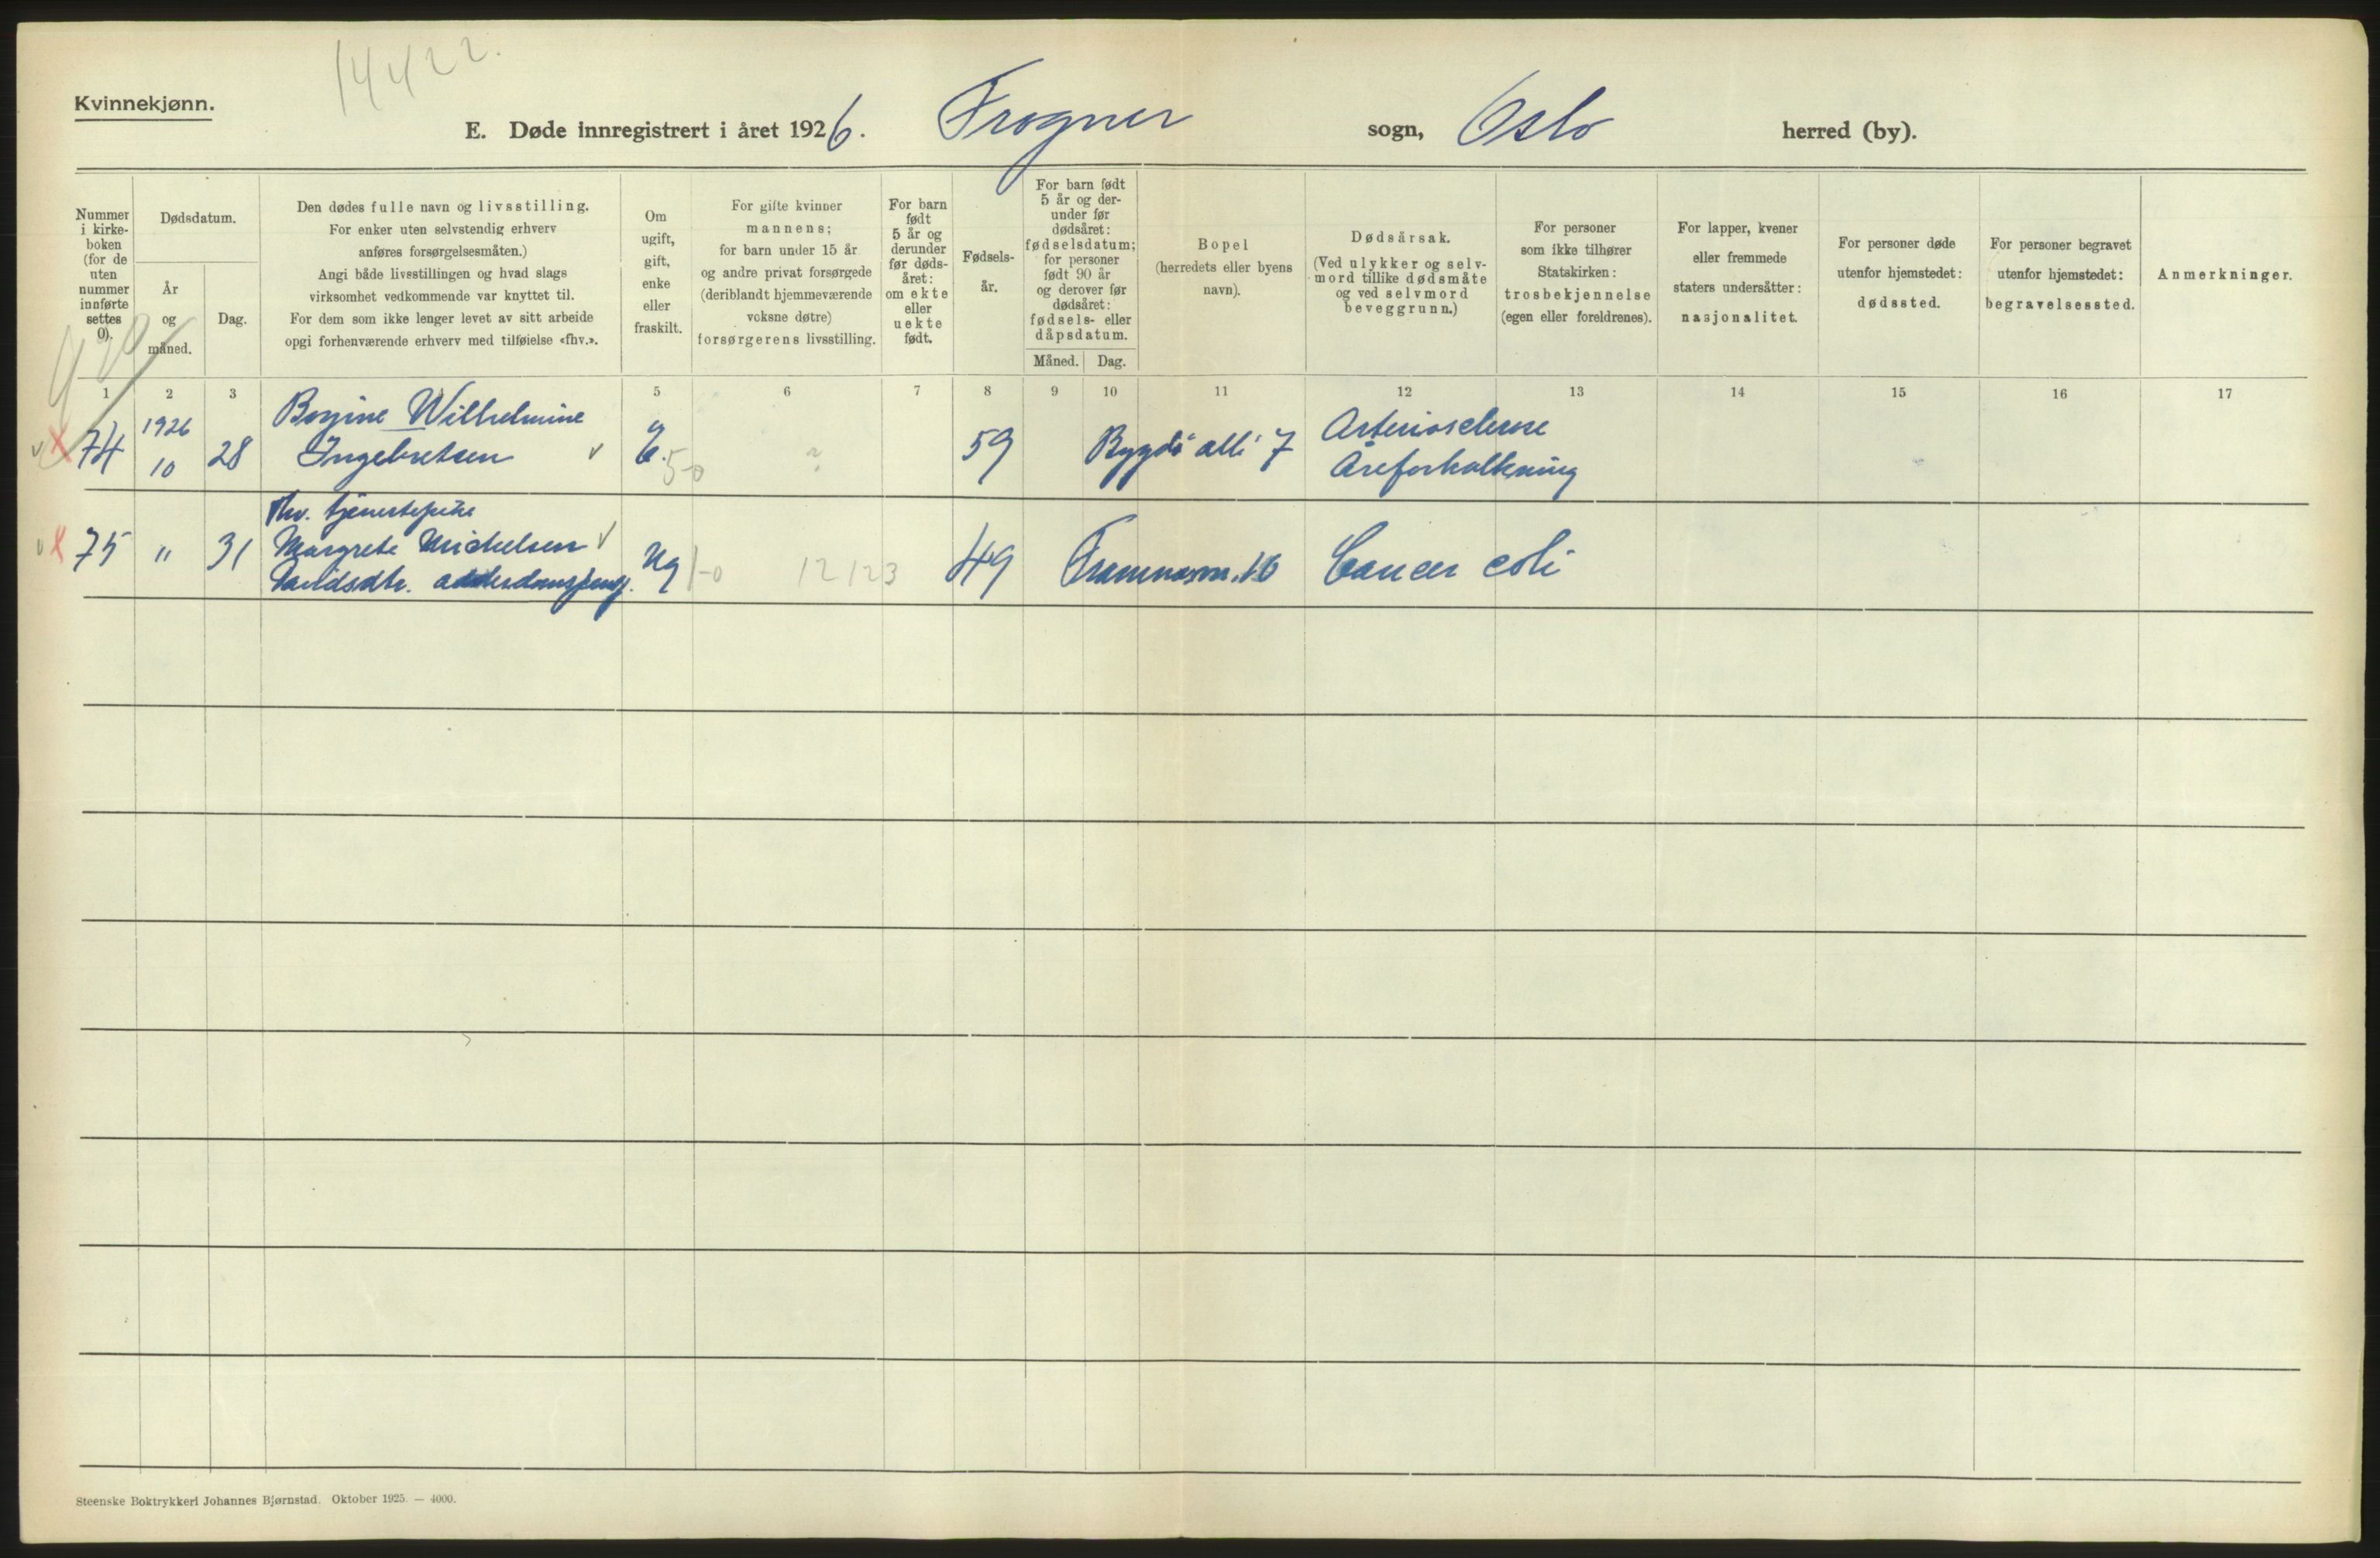 14422.
Kvinnekjønn.
E. Døde innregistrert i året 1926. Frogner sogn, Oslo herred (by).
Nummer
i kirke-
boken
(for de
uten
nummer
innførte
settes
0).
Dødsdatum.
År
og
måned.
Dag.
Den dødes fulle navn og livsstilling.
For enker uten selvstendig erhverv
anføres forsørgelsesmåten.)
Angi både livsstillingen og hvad slags
virksomhet vedkommende var knyttet til.
For dem som ikke lenger levet av sitt arbeide
opgi forhenværende erhverv med tilføielse «fhv.».
Om
ugift,
gift,
enke
eller
fraskilt.
For gifte kvinner
mannens;
for barn under 15 år
og andre privat forsørgede
(deriblandt hjemmeværende
voksne døtre)
forsørgerens livsstilling.
For barn
født
5 år og
derunder
før døds-
året:
om ekte
eller
uekte
født.
Fødsels-
år.
For barn født
5 år og der-
under før
dødsåret:
fødselsdatum;
for personer
født 90 år
og derover før
dødsåret:
fødsels- eller
dåpsdatum.
Måned. Dag.
Bopel
(herredets eller byens
navn).
Dødsårsak.
(Ved ulykker og selv-
mord tillike dødsmåte
og ved selvmord
beveggrunn.)
For personer
som ikke tilhører
Statskirken:
trosbekjennelse
(egen eller foreldrenes).
For lapper, kvener
eller fremmede
staters undersåtter:
nasjonalitet.
For personer døde
utenfor hjemstedet:
dødssted.
For personer begravet
utenfor hjemstedet:
begravelsessted.
Anmerkninger.
1 2 3 5 6 7 8 9 10 11 12 13 14 15 16 17
74 1926 10 28 Wilhelmine
Ingebretsen v E. 5-0 ? 59 Bygdø allé 7 Arteriosclerose
Åreforkalkning
fhv. tjenestepike
75 " 31 Margrete Michelsen v
Davidsdtr. Ug 1-0 12123 49 16 Cancer coli
Steenske Boktrykkeri Johannes Bjørnstad. Oktober 1925. — 4000.